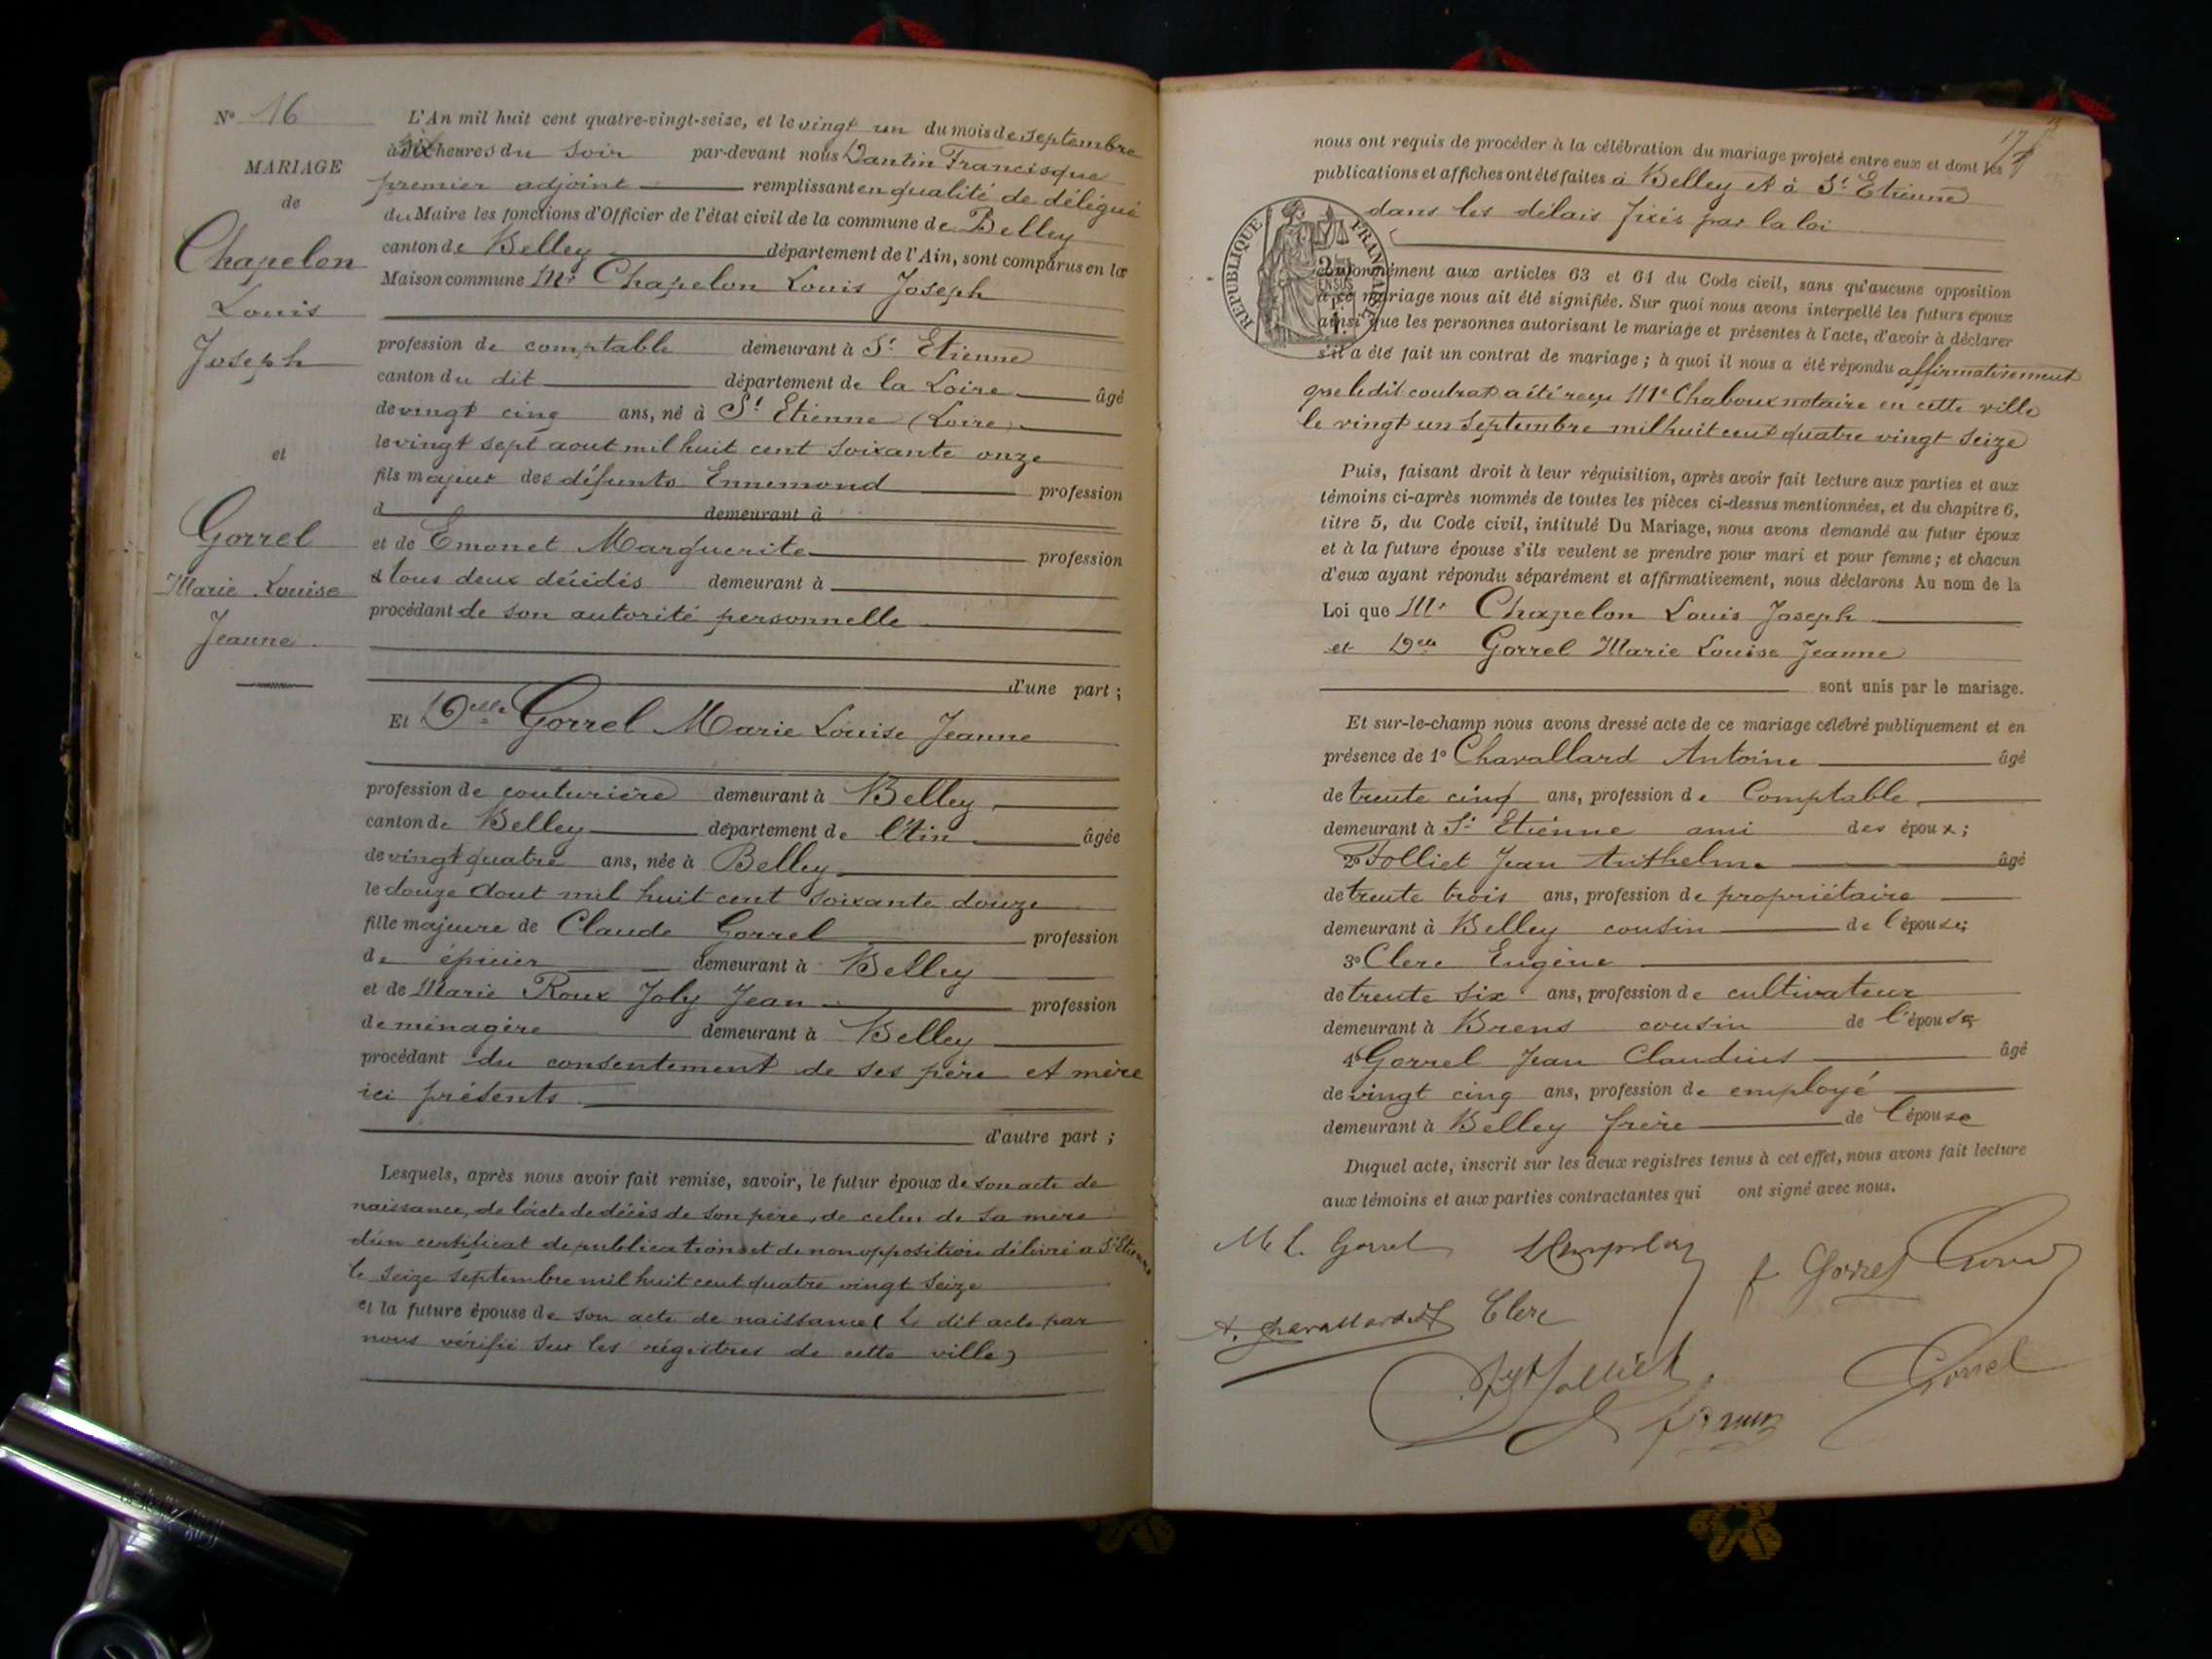 N° 16
MARIAGE
de
Chapelon
Louis
Joseph
et
Gorrel
Marie Louise
Jeanne
L'An mil huit cent quatre-vingt-seize, et le vingt un du mois de septembre
à six heures du soir par-devant nous Dantin Francisque
premier adjoint remplissant en qualité de délégué
du Maire les fonctions d'Officier de l'état civil de la commune de Belley
canton de Belley département de l'Ain, sont comparus en la
Maison commune Mr Chapelon Louis Joseph
profession de comptable demeurant à St Etienne
canton du dit département de la Loire âgé
de vingt cinq ans, né à St Etienne (Loire)
le vingt sept aout mil huit cent soixante onze
fils majeur des défunts Ennemond profession
d demeurant à
et de Emonet Marguerite profession
tous deux décédés demeurant à
procédant de son autorité personnelle
d'une part ;
Et Delle Gorrel Marie Louise Jeanne
profession de couturière demeurant à Belley
canton de Belley département de l'Ain âgée
de vingt quatre ans, née à Belley
le douze Aout mil huit cent soixante douze
fille majeure de Claude Gorrel profession
de épicier demeurant à Belley
et de Marie Roux Joly Jean profession
de ménagère demeurant à Belley
procédant du consentement de ses père et mère
ici présents
d'autre part ;
Lesquels, après nous avoir fait remise, savoir, le futur époux de son acte de
naissance, de l'acte de décès de son père, de celui de sa mère
d'un certificat de publications et de non opposition délivré a St Etienne
le seize septembre mil huit cent quatre vingt seize
et la future épouse de son acte de naissance ( le dit acte par
nous vérifié sur les régistres de cette ville)
nous ont requis de procéder à la célébration du mariage projeté entre eux et dont les
publications et affiches ont été faites à Belley et à St Etienne
dans les délais fixés par la loi
REPUBLIQUE FRANÇAISE
conformément aux articles 63 et 64 du Code civil, sans qu'aucune opposition
à ce mariage nous ait été signifiée. Sur quoi nous avons interpellé les futurs époux
ainsi que les personnes autorisant le mariage et présentes à l'acte, d'avoir à déclarer
s'il a été fait un contrat de mariage ; à quoi il nous a été répondu affirmativement
que ledit contrat a été reçu Me Chaboux notaire en cette ville
le vingt un septembre mil huit cent quatre vingt seize
Puis, faisant droit à leur réquisition, après avoir fait lecture aux parties et aux
témoins ci-après nommés de toutes les pièces ci-dessus mentionnées, et du chapitre 6,
titre 5, du Code civil, intitulé Du Mariage, nous avons demandé au futur époux
et à la future épouse s'ils veulent se prendre pour mari et pour femme ; et chacun
d'eux ayant répondu séparément et affirmativement, nous déclarons Au nom de la
Loi que Mr Chapelon Louis Joseph
et Delle Gorrel Marie Louise Jeanne
sont unis par le mariage.
Et sur-le-champ nous avons dressé acte de ce mariage célébré publiquement et en
présence de 1° Chavallard Antoine âgé
de trente cinq ans, profession de Comptable
demeurant à St Etienne ami des époux ;
2° Folliet Jean Anthelme âgé
de trente trois ans, profession de propriétaire
demeurant à Belley cousin de l'épouse ;
3° Clerc Eugène
de trente six ans, profession de cultivateur
demeurant à Brens cousin de l'épouse
4° Gorrel Jean Claudius âgé
de vingt cinq ans, profession de employé
demeurant à Belley frère de l'épouse
Duquel acte, inscrit sur les deux registres tenus à cet effet, nous avons fait lecture
aux témoins et aux parties contractantes qui ont signé avec nous.
M L Gorrel
Gorrel
A. Chavallard Clerc
Folliet
Gorrel